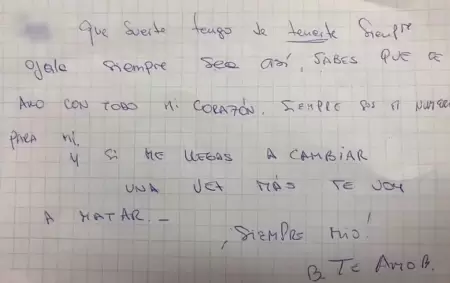 Que suerte tengo de tenerte siempre
ojala siempre sea así, SABES QUE TE
AMO CON TODO MI CORAZÓN. SIEMPRE SOS MI NUMERO
PARA MI.
Y SI ME LLEGAS A CAMBIAR
UNA VEZ MÁS TE VOY
A MATAR.-
¡SIEMPRE MIO!
B. TE AMO B.